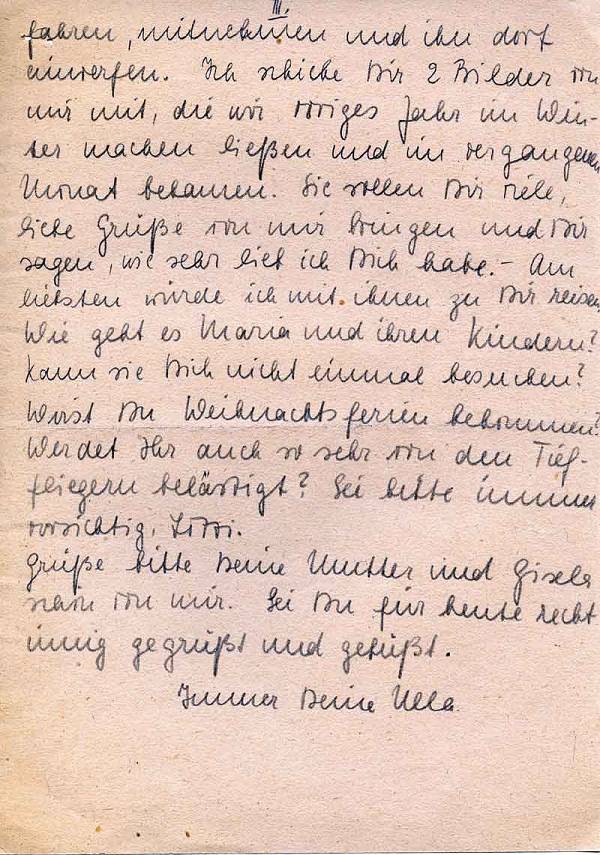 III.
fahren, mitnehmen und ihn dort
einwerfen. Ich schicke Dir 2 Bilder von
mir mit, die wir voriges Jahr im Win-
ter machen ließen und im vergangenen
Monat bekamen. Sie sollen Dir viele,
liebe Grüße von mir bringen und Dir
sagen, wie sehr lieb ich Dich habe. – Am
liebsten würde ich mit ihnen zu Dir reisen.
Wie geht es Maria und ihren Kindern?
Kann sie Dich nicht einmal besuchen?
Wirst Du Weihnachtsferien bekommen?
Werdet Ihr auch so sehr von den Tief-
fliegern belästigt? Sei bitte immer
vorsichtig,
Grüße bitte Deine Mutter und Gisela
schön von mir. Sei Du für heute recht
innig gegrüßt und geküßt.
Immer Deine Ulla